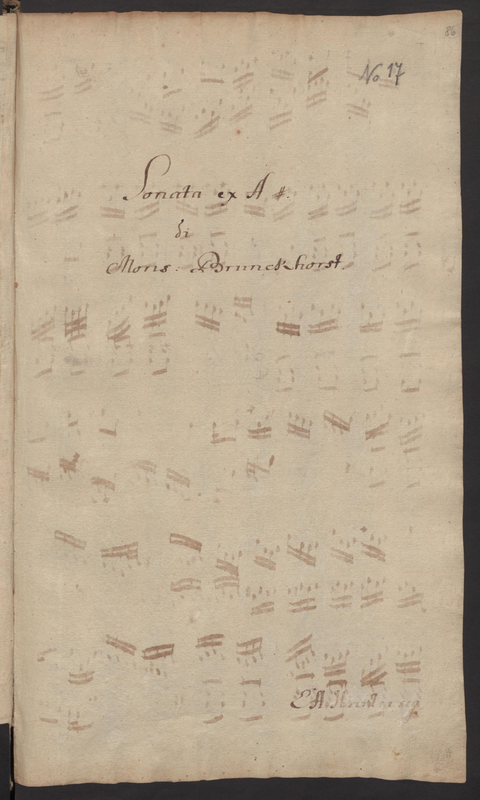 86
No 17
Sonata ex A #.
di
Mons: Brunckhorst.